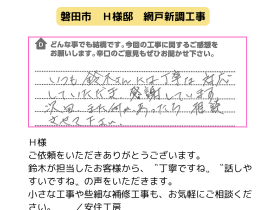 磐田市　H様邸　網戸新調工事
どんな事でも結構です。今回の工事に関するご感想を
お願いします。辛口のご意見もぜひお聞かせ下さい。
いつも鈴木さんには丁寧な対応
していただき、感謝しています。
次回、また何かあったら相談
させて下さい。
H様
ご依頼をいただきありがとうございます。
鈴木が担当したお客様から、“丁寧ですね。”話しや
すいですね。の声をいただきます。
小さな工事や些細な補修工事も、お気軽にご相談くだ
さい。　／安住工房